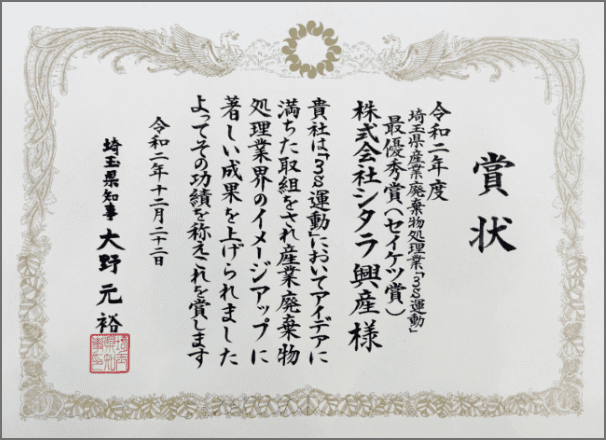 賞状
令和二年度
埼玉県産業廃棄物処理業「3S運動」
最優秀賞（セイケツ賞）
株式会社シタラ興産様
貴社は「3S運動」においてアイデアに
満ちた取組をされ産業廃棄物
処理業界のイメージアップに
著しい成果を上げられました
よってその功績を称えこれを賞します
令和二年十二月二十二日
埼玉県知事 大野元裕